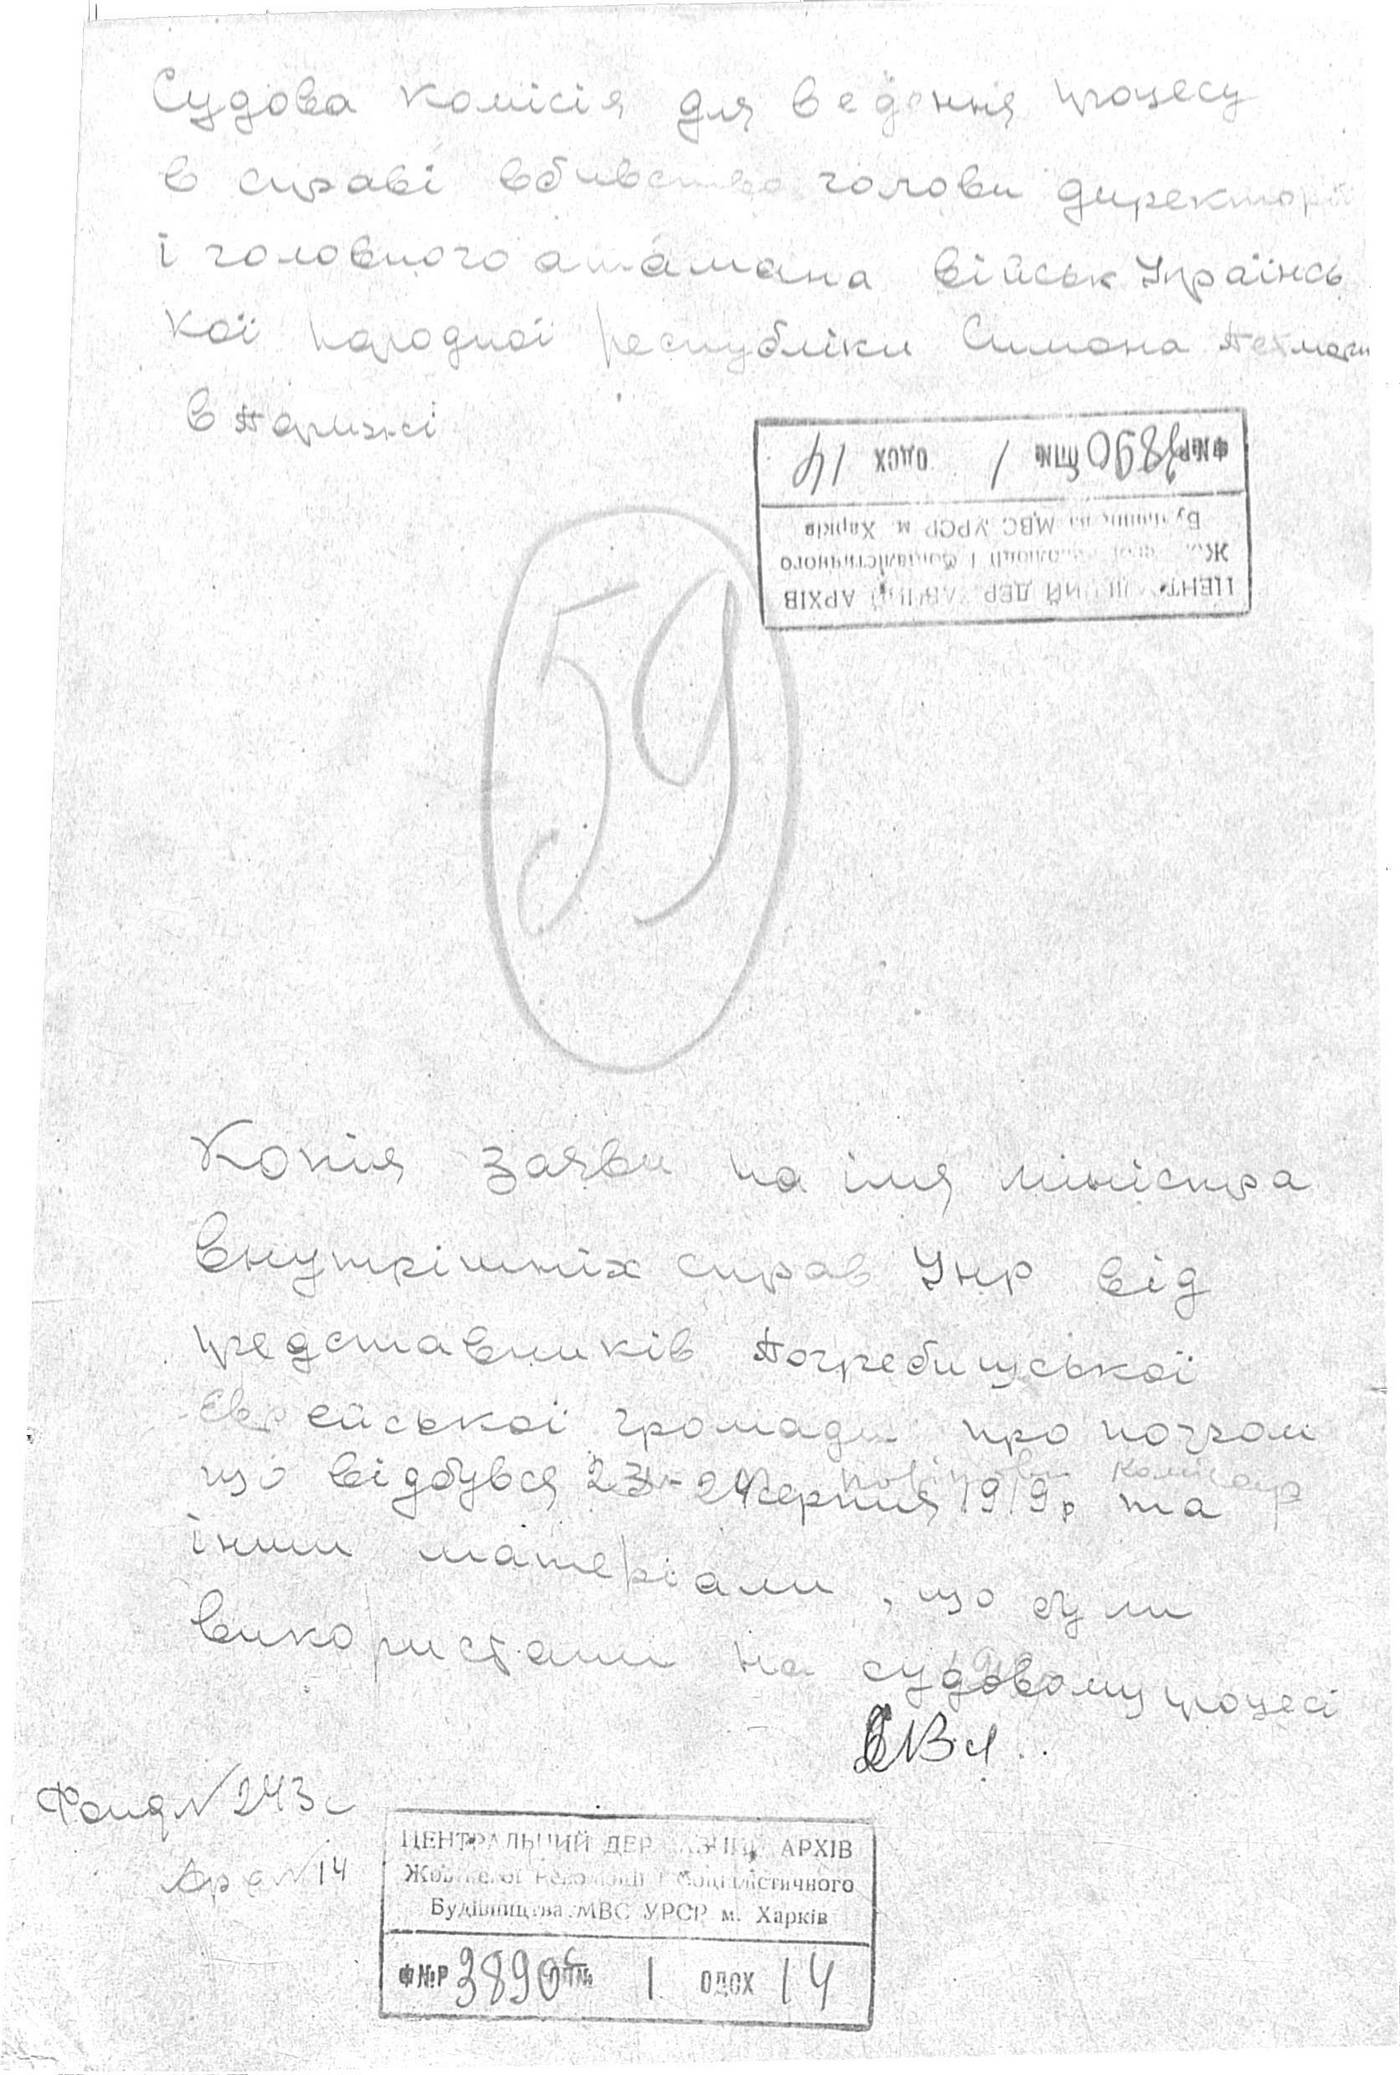 Судова комісія для ведення процесу
в справі вбивства голови директорії
і головного атамана військ Українсь
кої народної республіки Симона
в Парижі
Ф№Р 3890 ОП№ 1 ОДОХ 14
ЦЕНТРАЛЬНИЙ ДЕРЖАВНИЙ АРХІВ
Жовтневої революції і соціалістичного
Будівництва МВС УРСР м. Харків
59
Копія заяви на імя міністра
внутрішніх справ УНР від
представників Погребищської
Єврейської громади про погром
що відбувся 23-24 серпня 1919 р та
інши матеріали, що були
використани на судовому процесі
Фонд № 243с
Арх № 14
ЦЕНТРАЛЬНИЙ ДЕРЖАВНИЙ АРХІВ
Жовтневої революції і соціалістичного
Будівництва МВС УРСР м. Харків
Ф№Р 3890с ОП№ 1 ОДОХ 14